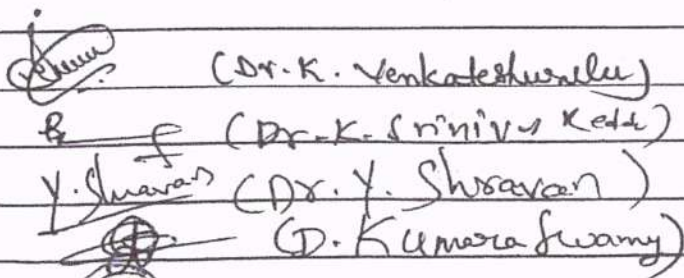 (Dr. K. Venkateshwarlu)
(Dr. K. Srinivas Reddy)
Y. Shravan (Dr. Y. Shravan)
(D. Kumara Swamy)